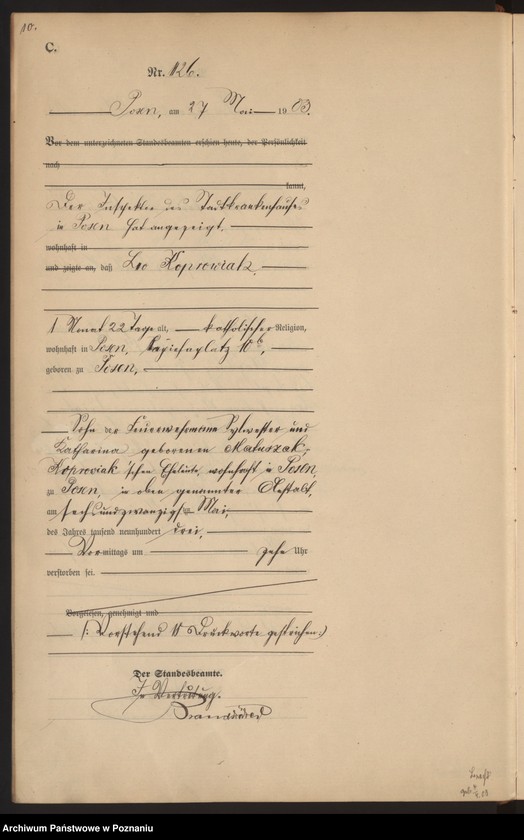 10.
C.
Nr. 126.
Posen, am 27 Mai 1903.
Vor dem unterzeichneten Standesbeamten erschien heute, der Persönlichkeit
nach
kannt,
Der Inspektor des Stadtkrankenhauses
in Posen hat angezeigt,
wohnhaft in
und zeigte an, daß Leo Koprowiak,
1 Monat 22 Tage alt, katholischer Religion,
wohnhaft in Posen, 10b,
geboren zu Posen,
Sohn der Feuerwehrmann Sylwester und
Katharina geborenen Matuszak,
Koprowiak'schen Eheleute, wohnhaft in Posen,
zu Posen, in oben genannter Anstalt,
am sechsundzwanzigsten Mai,
des Jahres tausend neunhundert drei,
Vormittags um zehn Uhr
verstorben sei.
Vorgelesen, genehmigt und
(: Vorstehend 11 Druckworte gestrichen:)
Der Standesbeamte.
In Vertretung.
geb.
Archiwum Państwowe w Poznaniu